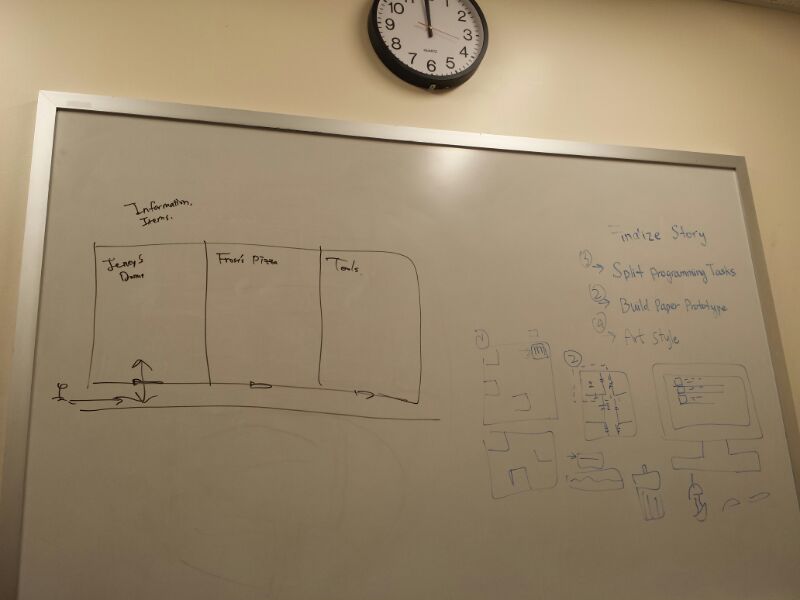 10
2
9
3
8
4
7
6
5
QUARTZ
Information.
Items.
Jenny's
Dorm
Pizza
Tools.
Finalize Story
3 → Split Programming Tasks
2 → Build Paper Prototype
→ Art Style
1
2